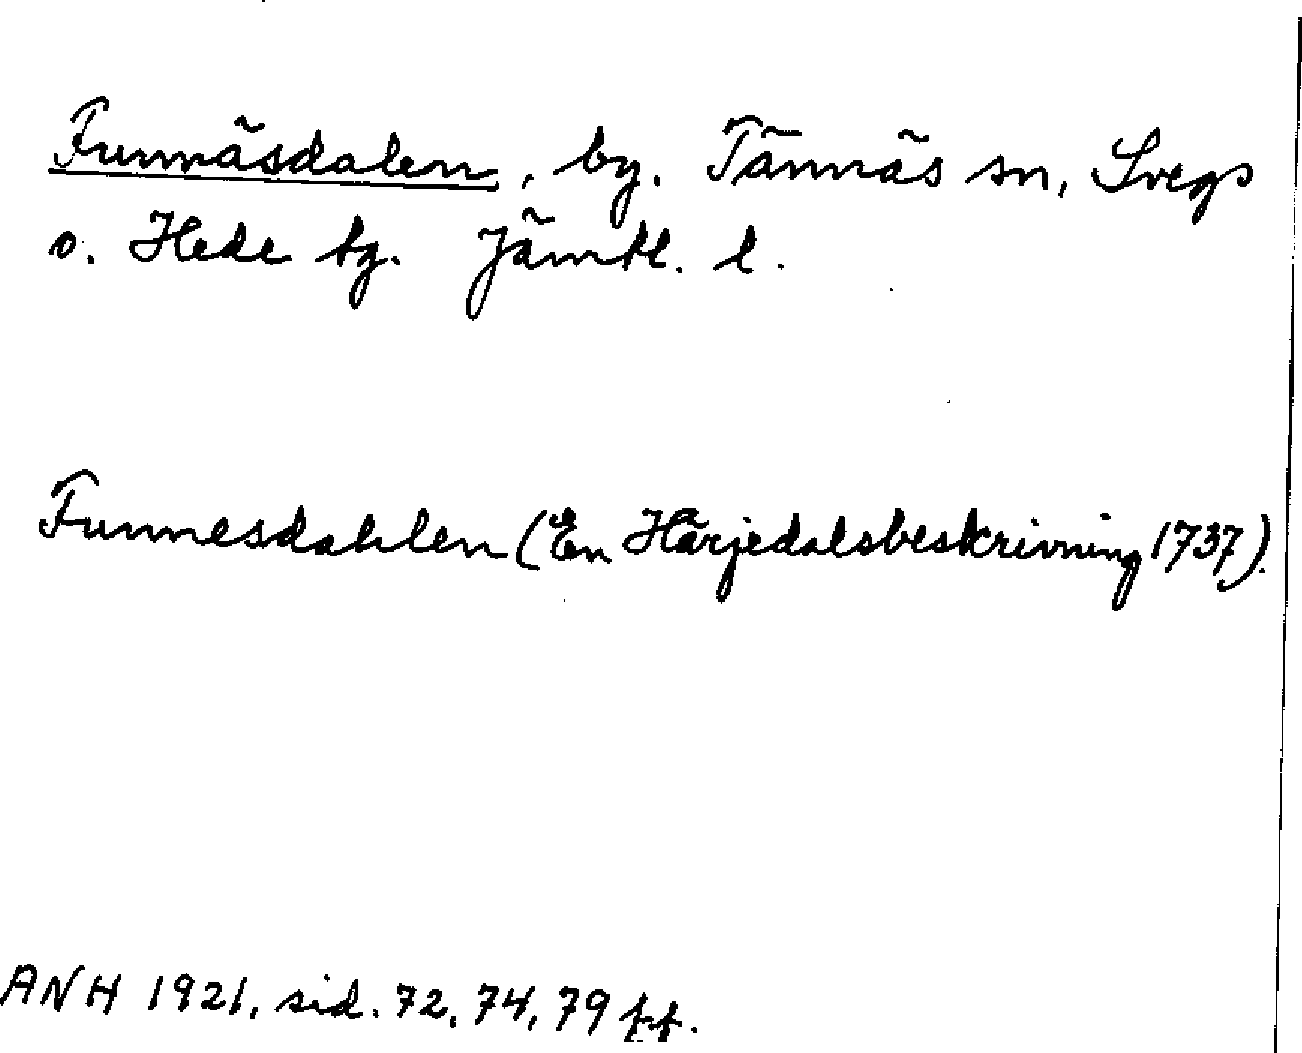 Funnäsdalen, by. Tännäs sn, Svegs
o. Hede tg. Jämtl. l.
Funnesdahlen (En Härjedalsbeskrivning 1737).
ANH 1921, sid. 72, 74, 79 ff.